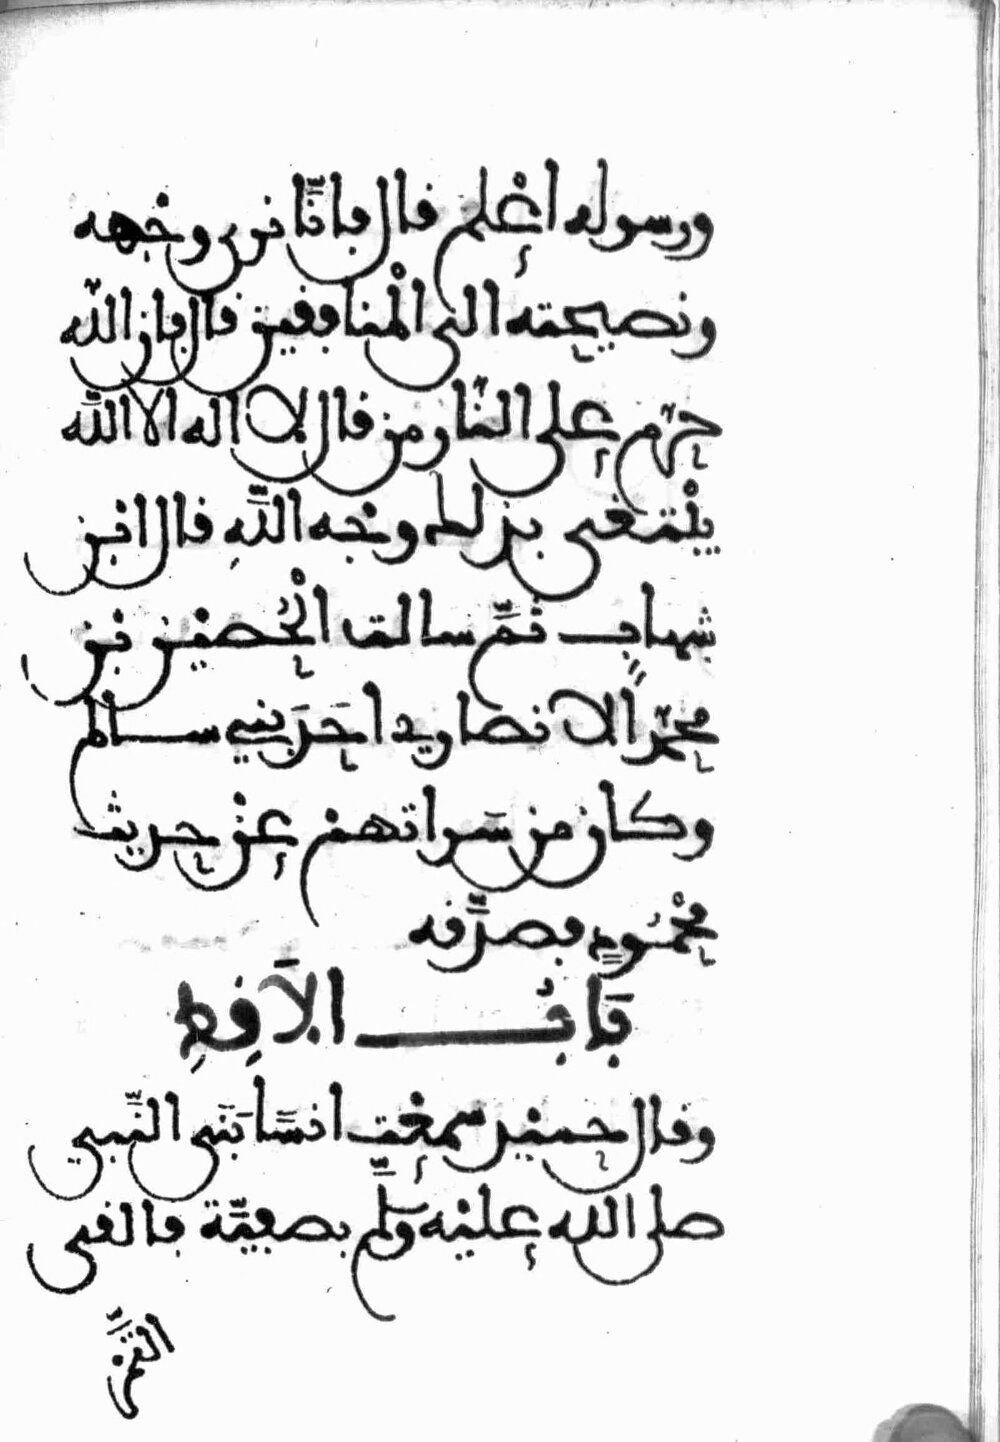 ورسوله اعْلم قال فانّا نرى وجْهه
ونصيحته الى الْمنافقين قال فان اللّه
حرّم على النّار من قال لا اله الا اللّه
يبْتغى بذلك وجْه اللَّهِ قال ابْن
شهاب ثمَّ سالت الْحُصيْن بْن
محمّدٍ الانصاري احَدَ بَنِي سالم
وكان من سَراتهمْ عنْ حديث
محْمُودٍ فصدَّقه
بَابُ الَاقِطِ
وقال حميْد سمعْت انسًا بَنَى النَّبي
صلى الله عليْه وَسلَّم بصفيّة فالقى
التَّمْرَ